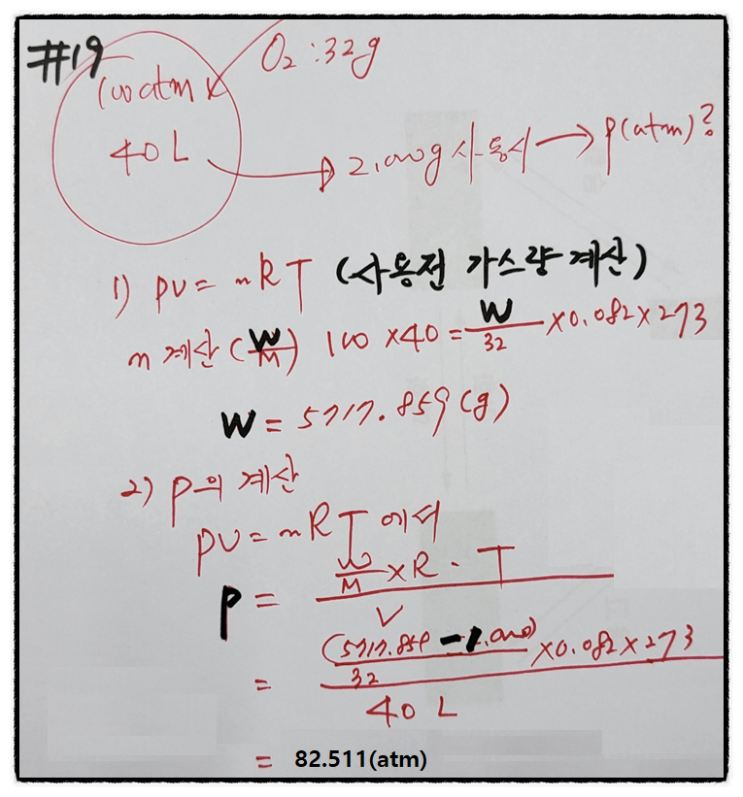 #19
O₂ : 32g
100 atm
40 L
2,000g 사용시 → P(atm)?
1) PV = nRT (사용전 가스량 계산)
n 계산 (W/M) 100 × 40 = W/32 × 0.082 × 273
W = 5717.859 (g)
2) P의 계산
PV = nRT 에서
P = (W/M × R · T) / V
= ((5717.859 - 1,000)/32 × 0.082 × 273) / 40 L
= 82.511(atm)